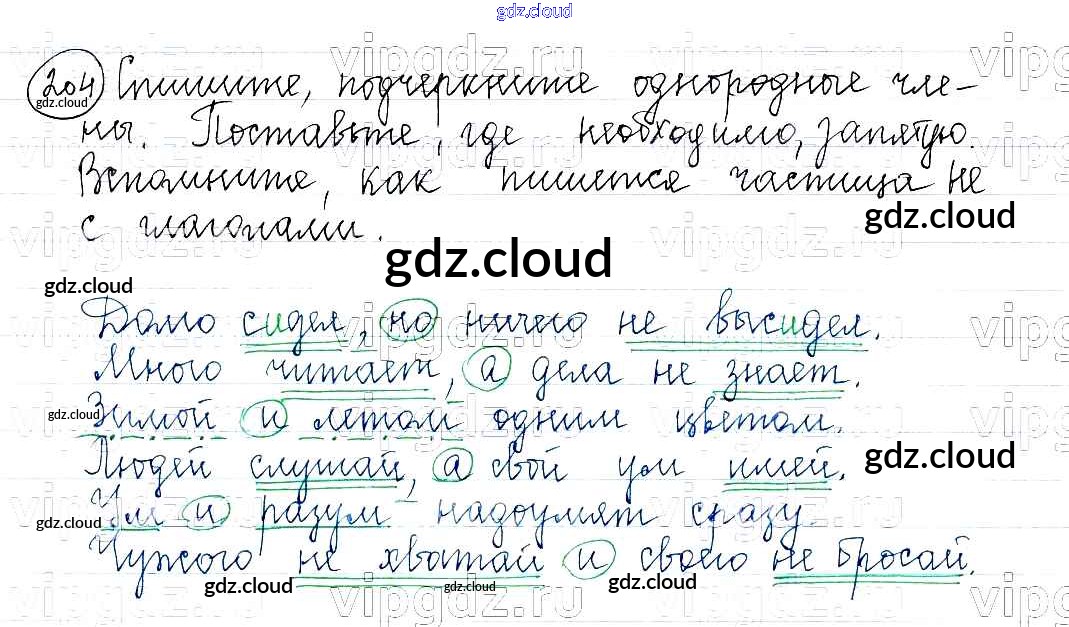 gdz.cloud
204 Спишите, подчеркните однородные чле-
gdz.cloud
ны. Поставьте, где необходимо, запятую.
Вспомните, как пишется частица не
с глаголами.
gdz.cloud
gdz.cloud
gdz.cloud
Долго сидел, но ничего не высидел.
Много читает, а дела не знает.
gdz.cloud
Зимой и летом одним цветом.
Людей слушай, а свой ум имей.
gdz.cloud
Ум и разум надоумят сразу.
gdz.cloud
Чужого не хватай и своего не бросай.
gdz.cloud gdz.cloud gdz.cloud
vipgdz.ru vipgdz.ru